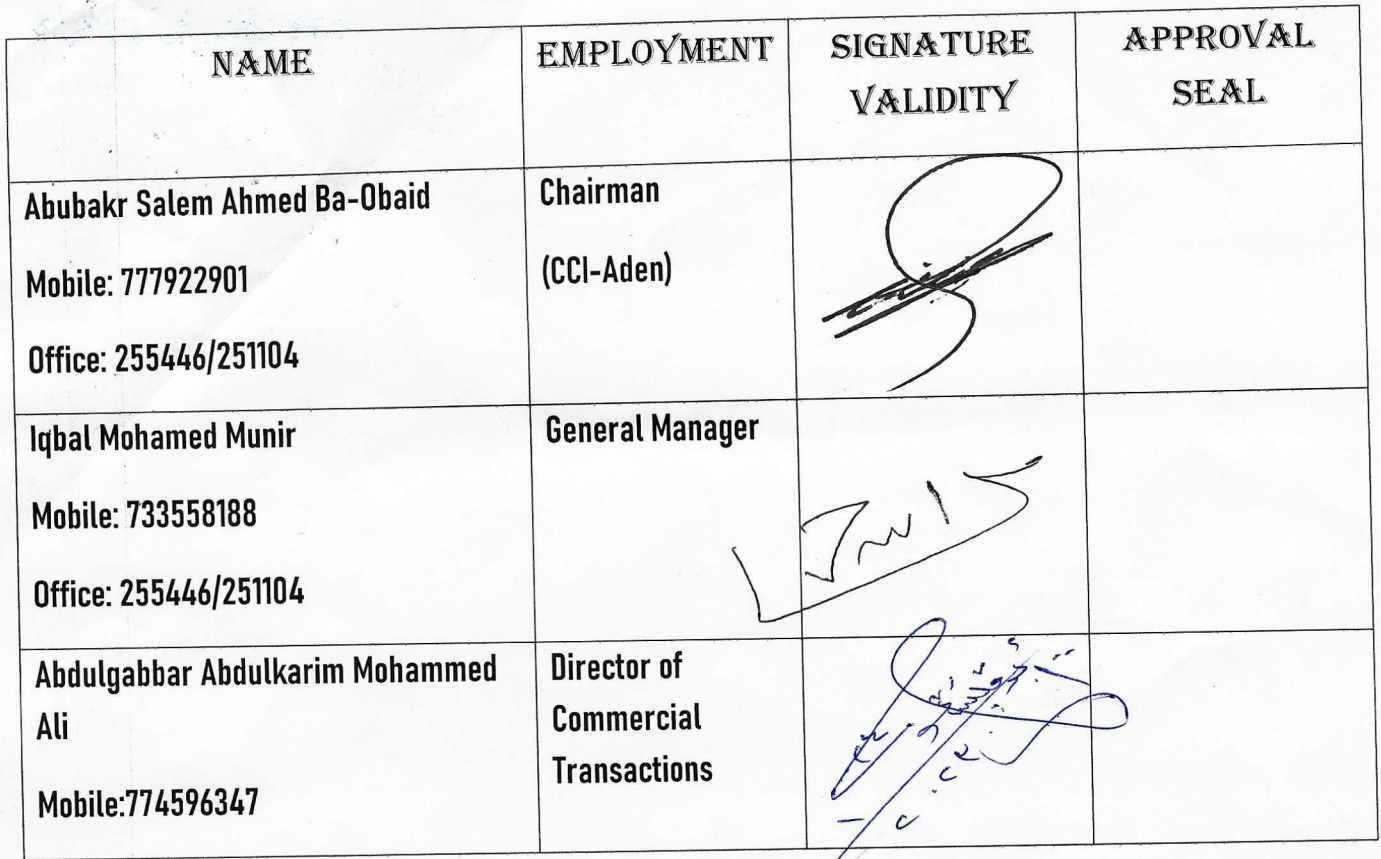 NAME
EMPLOYMENT
SIGNATURE
VALIDITY
APPROVAL
SEAL
Abubakr Salem Ahmed Ba-Obaid
Mobile: 777922901
Office: 255446/251104
Chairman
(CCI-Aden)
Iqbal Mohamed Munir
Mobile: 733558188
Office: 255446/251104
General Manager
Abdulgabbar Abdulkarim Mohammed
Ali
Mobile:774596347
Director of
Commercial
Transactions